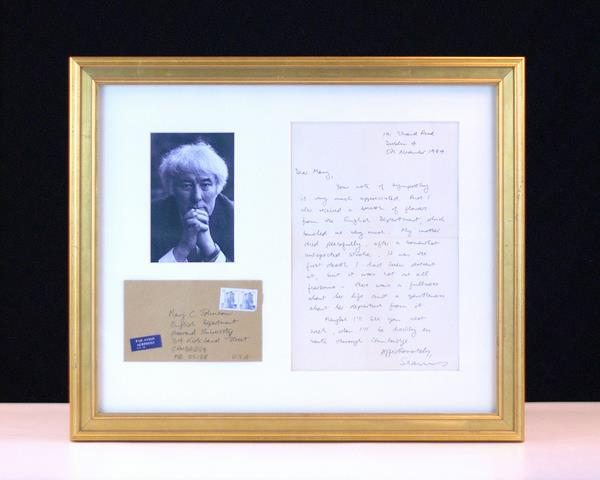 191 Strand Road
Dublin 4
5th November 1984
Dear Mary,
Your note of sympathy
is very much appreciated. And I
also received a bouquet of flowers
from the English Department, which
touched us very much. My mother
died peacefully, after a somewhat
unexpected stroke. It was the
first death I had been present
at, but it was not at all
fearsome - there was a fullness
about her life and a gentleness
about her departure from it.
Maybe I'll see you next
week, when I'll be briefly en
route through Cambridge.
Affectionately,
Seamus
Mary C Johnson
English Department
Harvard University
34 Kirkland Street
CAMBRIDGE
MA 02138 U.S.A.
PAR AVION
AERPHOST